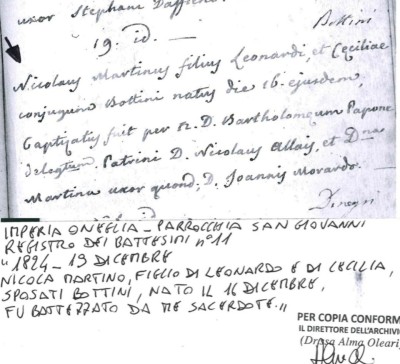 uxor Stephani Daffieno
19. id. —
Bottini
Nicolaus Martinus filius Leonardi, et Ceciliae
conjugum Bottini natus die 16. ejusdem,
Captijatus fuit per R. D. Bartholomeum Papone
delegtum. Patrini D. Nicolaus Allais, et Dna
Martina uxor quond. D. Joannis Morardo.
IMPERIA ONEGLIA - PARROCCHIA SAN GIOVANNI
REGISTRO DEI BATTESIMI n° 11
"1824 - 19 DICEMBRE
NICOLA MARTINO, FIGLIO DI LEONARDO E DI CECILIA,
SPOSATI BOTTINI, NATO IL 16 DICEMBRE,
FU BATTEZZATO DA ME SACERDOTE."
PER COPIA CONFORM
IL DIRETTORE DELL'ARCHIVIO
(Dr.ssa Alma Oleari)